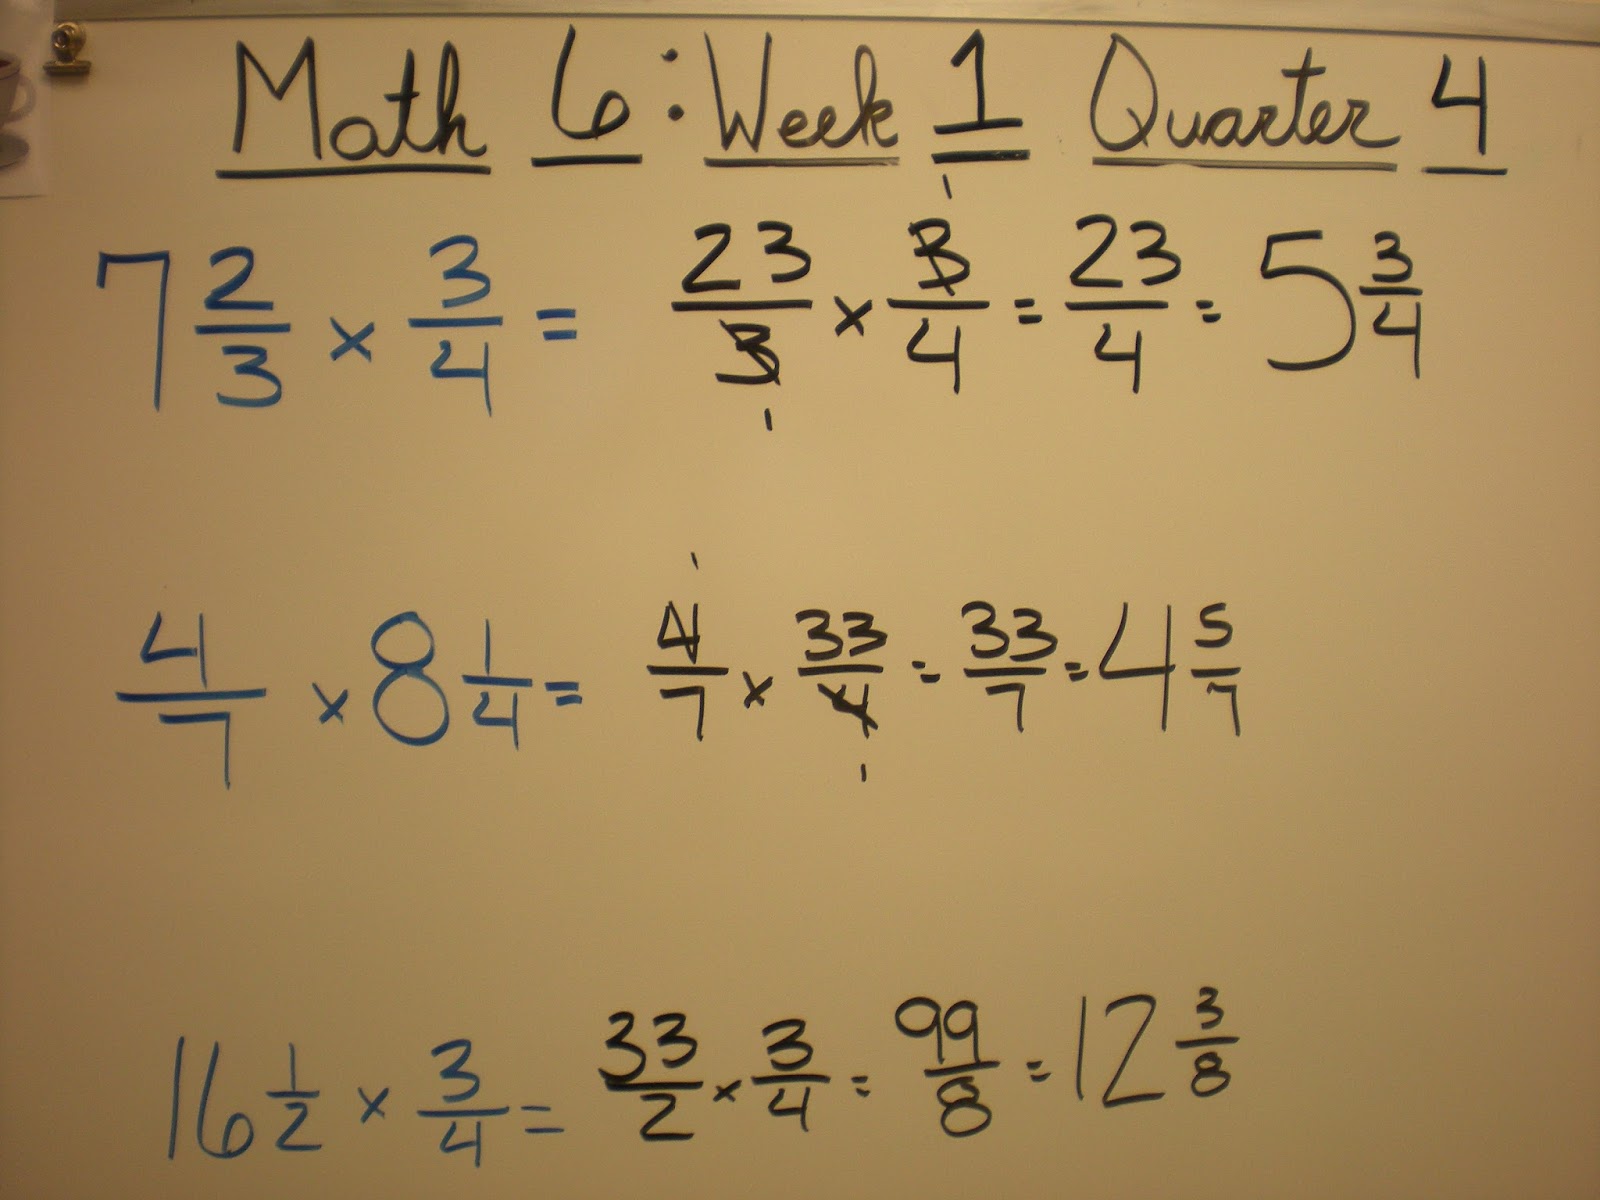 Math 6 : Week 1 Quarter 4
7 2/3 × 3/4 = 23/3 × 3/4 = 23/4 = 5 3/4
4/7 × 8 1/4 = 4/7 × 33/4 = 33/7 = 4 5/7
16 1/2 × 3/4 = 33/2 × 3/4 = 99/8 = 12 3/8